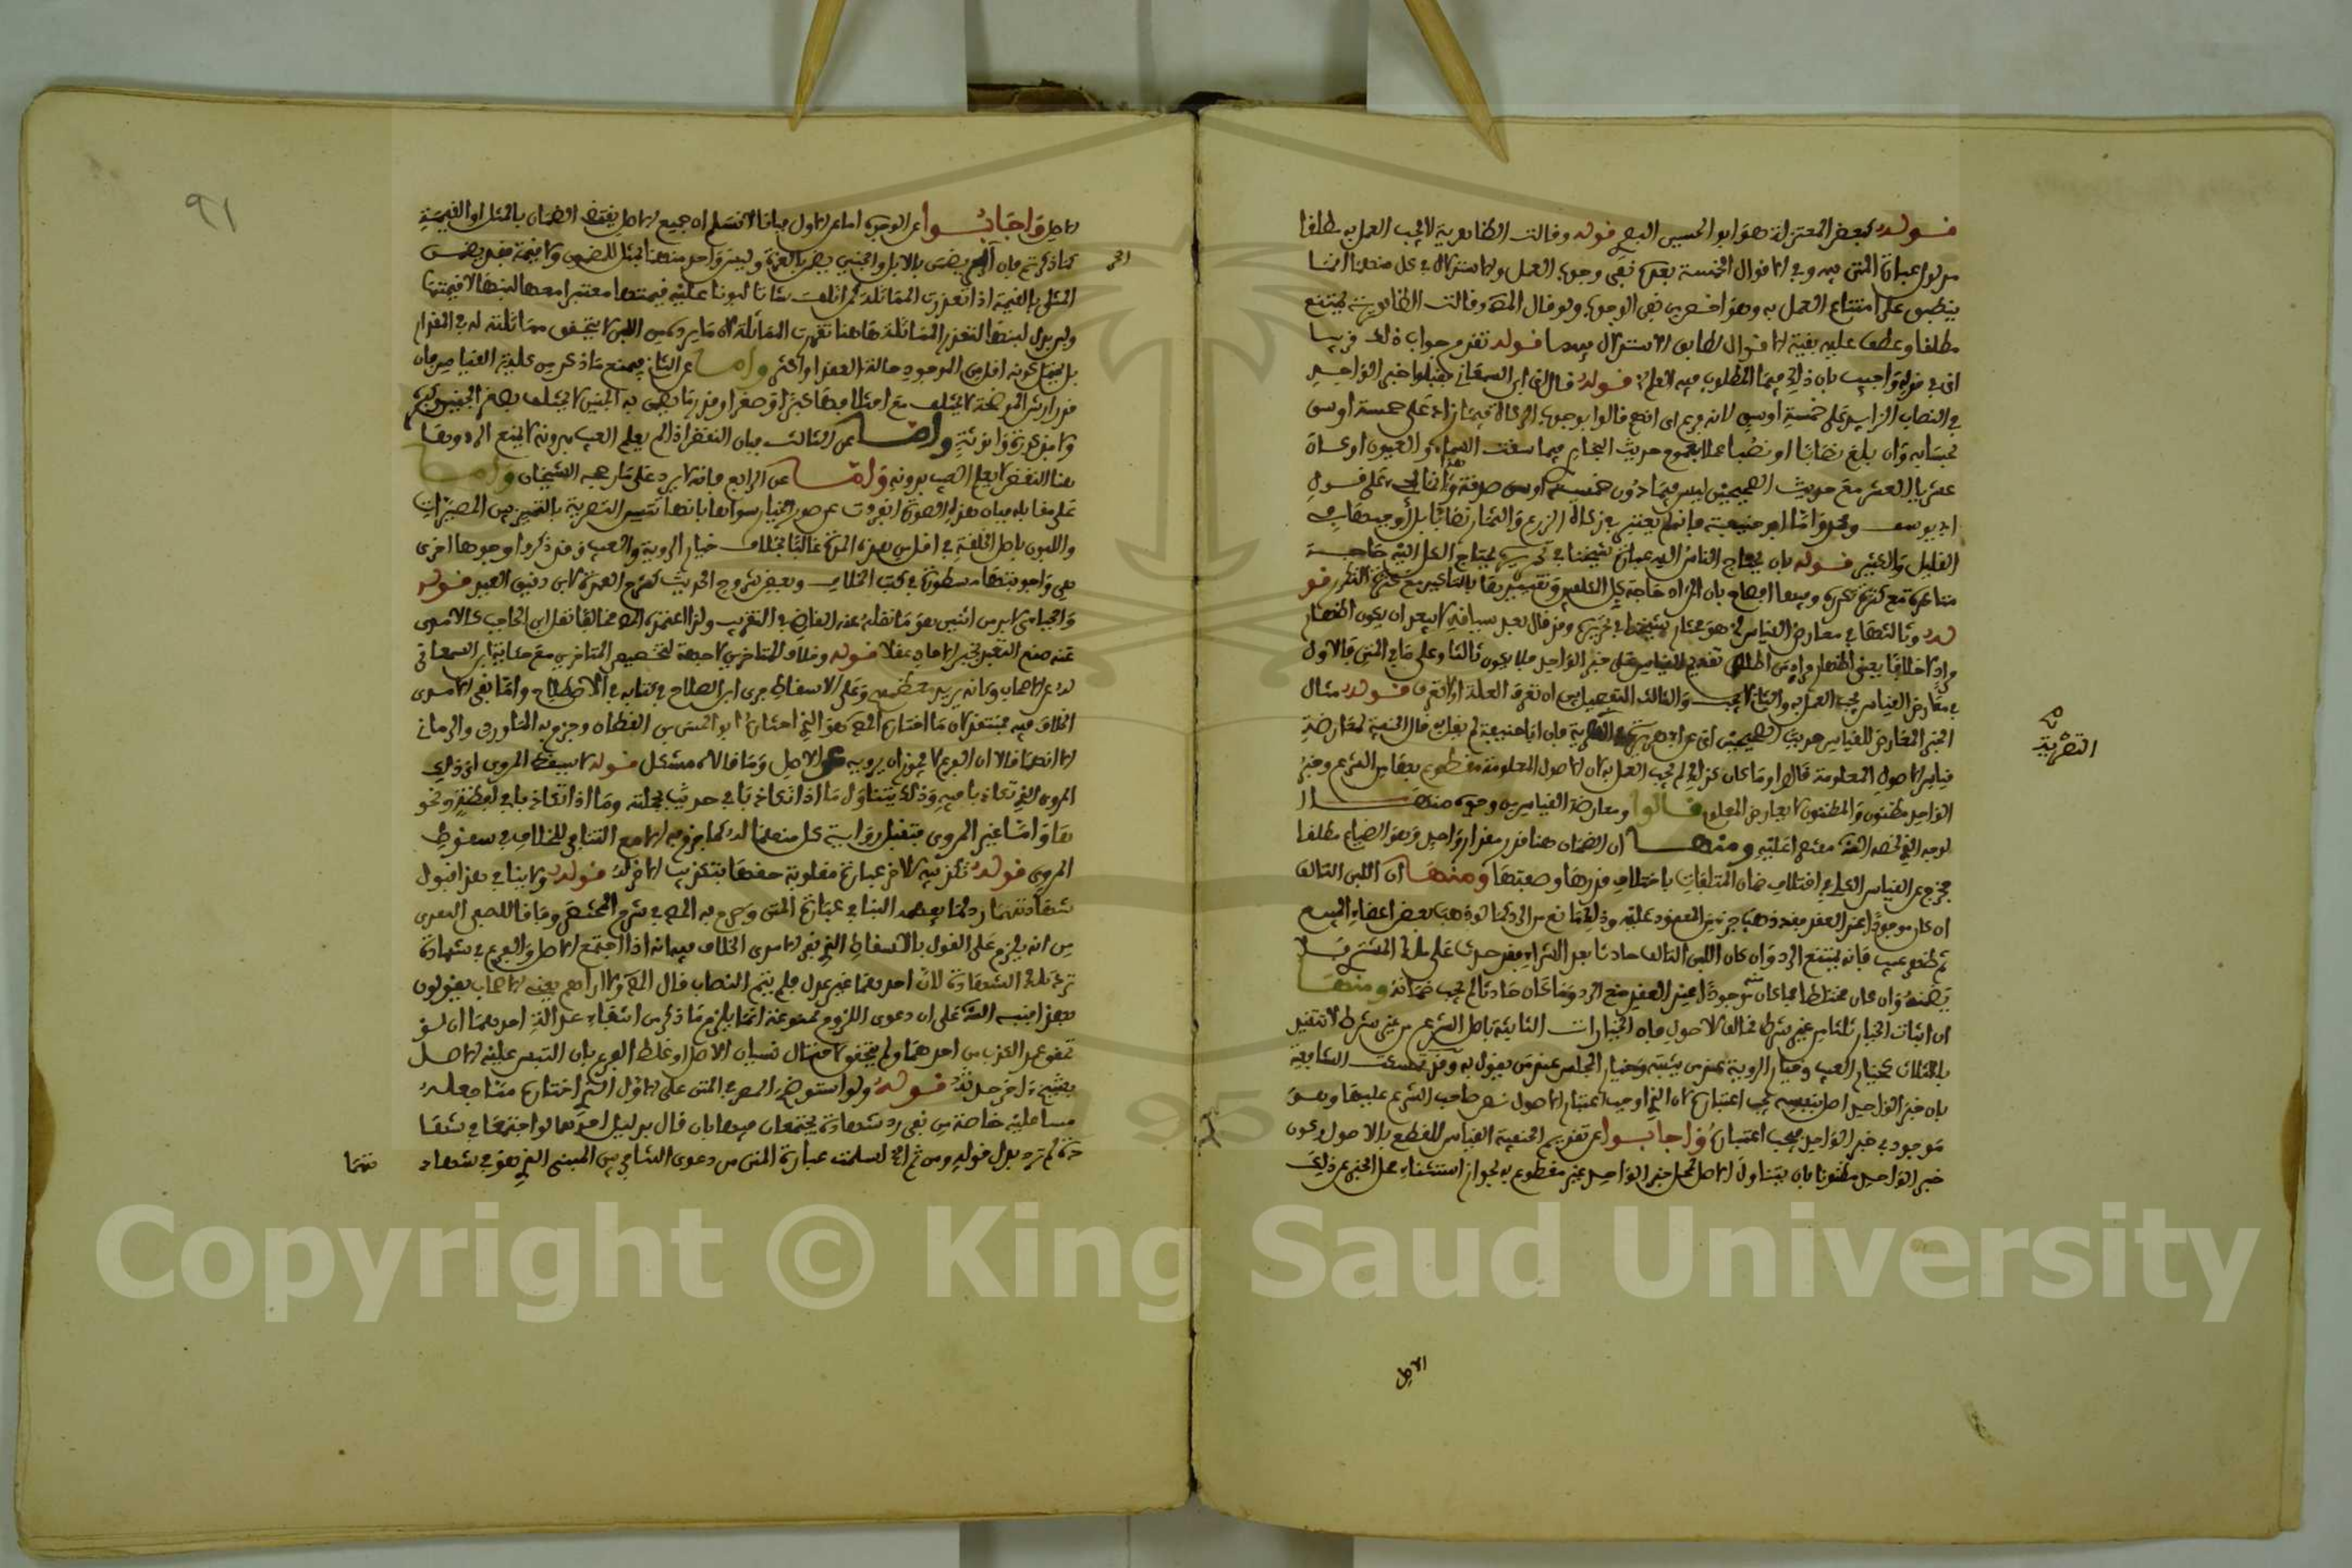 قوله كبعض المعتزلة هو ابو الحسين البصري قوله وقالت الظاهرية لا يجب العمل به مطلقا
مدلول عبارة المتن فيه وفي الاقوال الخمسة بعده نفي وجوب العمل والاستدلال في كل منهما انما
ينطبق على امتناع العمل به وهو اخص من نفي الوجوب ولو قال المصنف وقالت الظاهرية يمتنع
مطلقا وعطف عليه بقية الاقوال لطابق الاستدلال فيها قوله تقدم جواب ذلك قريبا
اي في قوله واجيب بان ذلك فيما المطلوب فيه العلم قوله قال اي ابن السمعاني فقبلوا خبر الواحد
في النصاب الزايد على خمسة اوسق لانه فرع اي انهم قالوا بوجوب الزكاة فيما زاد على خمسة اوسق
بحسابه وان بلغ نصابا او نصبا عملا بعموم حديث البخاري فيما سقت السماء والعيون او كان
عشريا العشر مع حديث الصحيحين ليس فيما دون خمسة اوسق صدقة وهذا على قول
ابي يوسف ومحمد واما ابو حنيفة فانه لم يعتبر في زكاة الزرع والثمار نصابا بل اوجبها في
القليل والكثير قوله بان يحتاج الناس اليه عبارة شيخنا في تحريره يحتاج الكل اليه حاجة
متاكدة مع كثرة تكرره
قوله وثالثها في معارض القياس
في معارض القياس يجب العمل به والثاني لا يجب والثالث التفصيل بين ان تعرف العلة او لا تعرف قوله مثال
الخبر المعارض للقياس حديث الصحيحين اي عن ابي هريرة في المصراة فان ابا حنيفة لم يقل به قال الحنفية لمعارضته
قياس الاصول المعلومة قالوا وما كان كذلك لم يجب العمل به لان الاصول المعلومة مقطوع بها من الشرع وخبر
الواحد مظنون والمظنون لا يعارض المعلوم قالوا ومعارضة القياس من وجوه منها
الوجه الذي لخصه المصنف مقتصرا عليه ومنها ان الضمان هنا قدر مقدار واحد وهو الصاع مطلقا
فخرج عن القياس الكلي في اختلاف ضمان المتلفات باختلاف قدرها وصفتها ومنها ان اللبن التالف
ان كان موجودا عند العقد فقد ذهب جزء من المعقود عليه وذلك مانع من الرد كما لو ذهب بعض اعضاء المبيع
ثم ظهر عيب فانه يمتنع الرد وان كان اللبن التالف حادثا بعد الشراء فقد حدث على ملك المشتري فلا
يضمنه وان كان مختلطا فما كان منه موجودا عند العقد منع الرد وما كان حادثا لم يجب ضمانه ومنها
ان اثبات الخيار ثلاثا من غير شرط مخالف للاصول فان الخيارات الثابتة باصل الشرع من غير شرط لا تتقيد
بالثلاث كخيار العيب وخيار الروية عند من يثبته وخيار المجلس عند من يقول به وقد تمسكت الشافعية
بان خبر الواحد اصل بنفسه يجب اعتباره لان الذي اوجب اعتبار الاصول نص صاحب الشرع عليها وهو
موجود في خبر الواحد فيجب اعتباره واجابوا عن تقديم الحنفية القياس للقطع بالاصول وكون
خبر الواحد مظنونا بان تناول الاصل لمحل خبر الواحد غير مقطوع به لجواز استثناء محل الخبر عن ذلك
التصرية
الاصل
٩١
الاصل واجابوا عن الوجوه اما عن الاول فبانا لا نسلم ان جميع الاصل يقتضي الضمان بالمثل او القيمة
كما ذكرتم فان الحر يضمن بالابل والجنين يضمن بالغرة وليس واحد منهما بمثل للمضمون ولا قيمة فقد يضمن
المثلي بالقيمة اذا تعذرت المماثلة كمن اتلف شاة لبونا عليه قيمتها معتبرا معها لبنها لا قيمتها
وليرد بدل لبنها لتعذر المماثلة وهاهنا تعذرت المماثلة لان ما يرد من اللبن لا يتحقق مماثلته له في المقدار
بل يحتمل كونه اقل من الموجود حالة العقد او اكثر واما عن الثاني فيمنع ما ذكر من كلية القياس فان
قدر ارش الموضحة لا يختلف مع اختلافها كبرا وصغرا وقدر ما يضمن به الجنين لا يختلف
ولا بذكورة وانوثة واما عن الثالث فبان النقص اذا لم يعلم العيب بدونه لا يمنع الرد وهنا
هنا النقص لا يعلم العيب بدونه واما عن الرابع فانه لا يرد على ما رجحه الشيخان واما
على مقابله فبان هذه الصورة انفردت عن صور الخيار سواها بانها
واللبون باصل الخلقة في اقل من هذه المدة غالبا بخلاف خيار الروية والعيب وقد ذكروا وجوها اخرى
هي واجوبتها مسطورة في كتب الخلاف وبعض شروح الحديث كشرح العمدة لابن دقيق العيد قوله
والجبائي لابد من اثنين هو ما نقله عنه القاضي في التقريب ولذا اعتمده المصنف مخالفا لنقل ابن الحاجب كالآمدي
عنه منع التعبد بخبر الاحاد عقلا قوله وخلاف للمتاخرين لا جهة لتخصيص المتاخرين مع حكاية ابن السمعاني
له عن الاصحاب وكانه يريد معظمهم وعلى الاسقاط جرى ابن الصلاح في كتابه في الاصطلاح واما نفي الآمدي
الخلاف فيه فمنتقد لان ما اختاره المصنف هو الذي اختاره ابو الحسن بن القطان وجزم به الماوردي والروياني
الا انهما قالا ان الفرع لا يجوز ان يرويه عن الاصل وما قالاه مشكل قوله لا يسقط المروي اي ذلك
المروي الذي تكاذبا فيه وذلك يتناول ما اذا تكاذبا في حديث بجملته وما اذا تكاذبا في لفظة ونحو
ها واما غير المروي فتقبل رواية كل منهما له كما جزم به الاصح التنافي للخلاف في سقوط
المروي قوله تكذيبه للاخر عبارة مقلوبة حقها بتكذيب الاخر له قوله ولا ينافي هذا قبول
شهادتهما
من انه يلزم على القول بالاسقاط الذي نفي الآمدي الخلاف فيه انه اذا اجتمع الاصل والفرع في شهادة
ترد تلك الشهادة لان احدهما غير عدل فلم يتم النصاب قال المصنف ولا اراهم يعني الاصحاب يقولون
بهذا فنبه المصنف على ان دعوى اللزوم ممنوعة انما يلزم ما ذكر من انتفاء عدالة احدهما ان لو
تحقق عمد الكذب من احدهما ولم يتحقق لاحتمال نسيان الاصل او غلط الفرع بان التبس عليه الاصل
بشيخ اخر حدثه قوله ولو استوضح المصنف في المتن على الاول الذي اختاره متنا جعله
مبنيا عليه خاصة من نفي رد شهادة يجتمعان فيها بان قال بدليل انهما لو اجتمعا في شها
دة لم ترد بدل قوله ومن ثم الخ لسلمت عبارة المتن من دعوى التنافي بين المبني الذي هو في شهاد
تهما